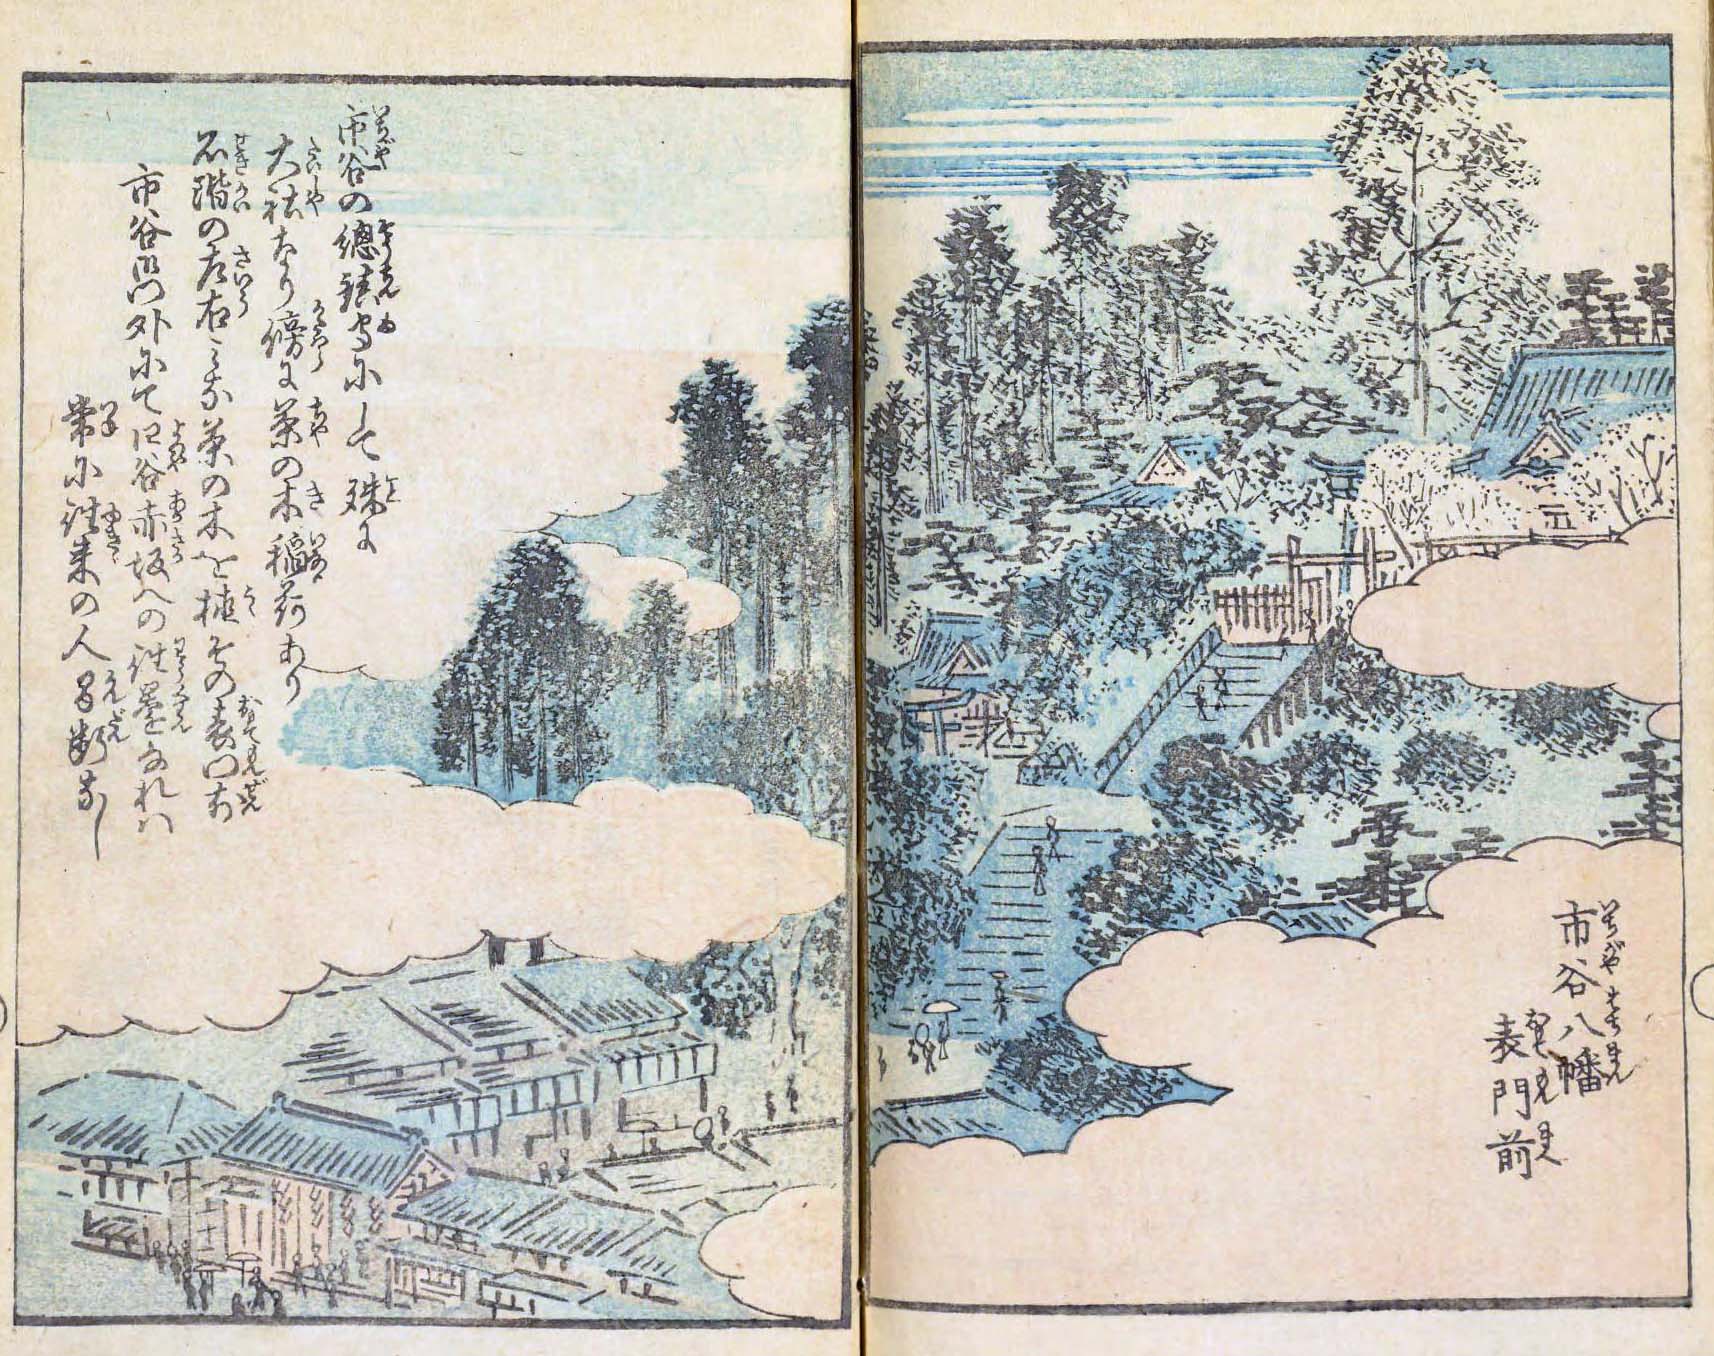 市谷八幡
表門前
市谷の總鎮守にして殊に
大社なり傍に茶の木稲荷あり
石階の左右ミな茶の木を植その表門前
市谷御門外にて四谷赤坂への往還なれハ
常に往来の人間断なし